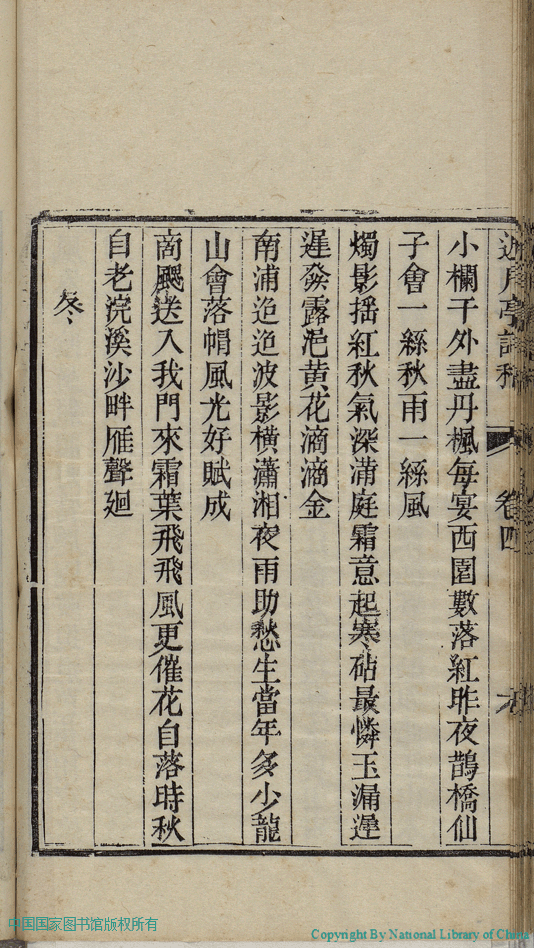 近月亭詩稿 卷四
小欄干外盡丹楓每宴西園數落紅昨夜鵲橋仙
子會一絲秋雨一絲風
燭影搖紅秋氣深滿庭霜意起寒砧最憐玉漏遲
遲發露浥黃花滴滴金
南浦迢迢波影橫瀟湘夜雨助愁生當年多少龍
山會落帽風光好賦成
商飈送入我門來霜葉飛飛風更催花自落時秋
自老浣溪沙畔雁聲廻
冬
中国国家图书馆版权所有
Copyright By National Library of China